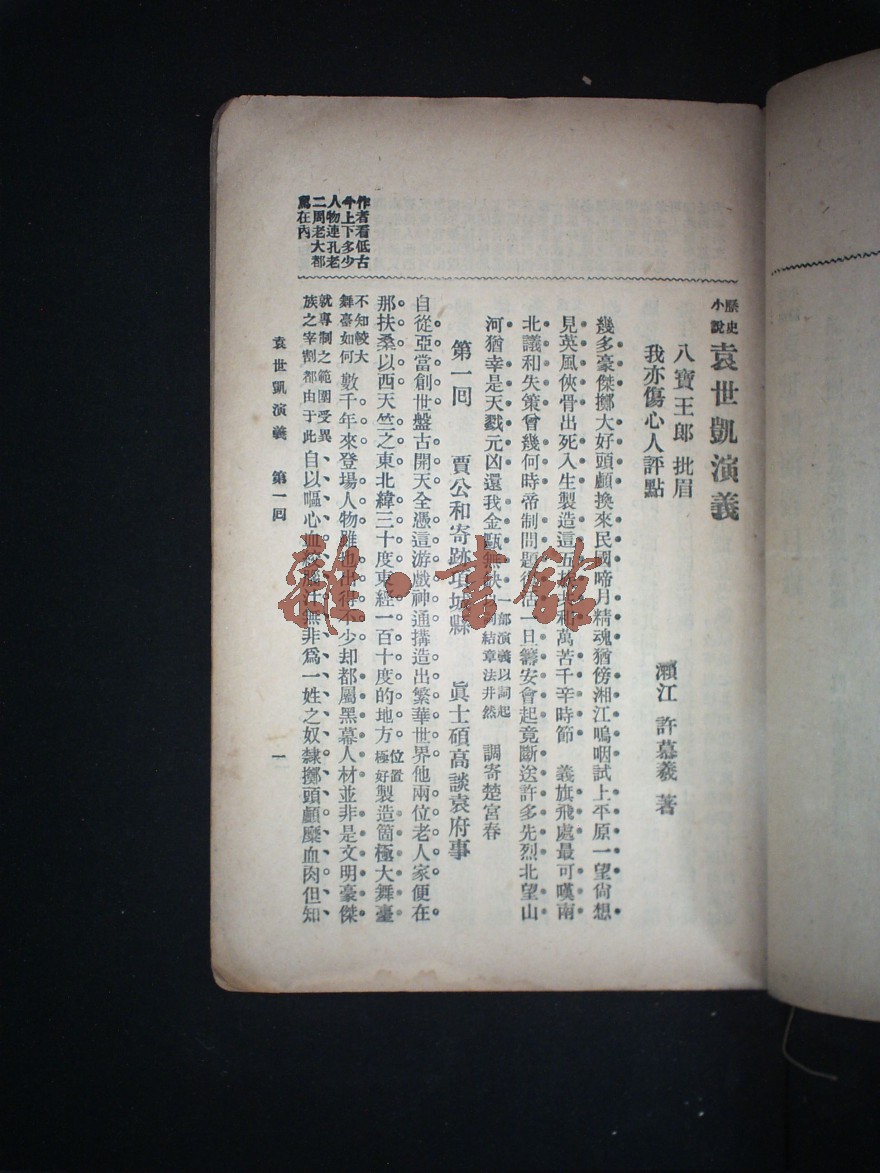 歷史小說 袁世凱演義
瀨江 許慕羲 著
八寶王郎 批眉
我亦傷心人評點
幾多豪傑擲大好頭顱換來民國啼月精魂猶傍湘江嗚咽試上平原一望尙想
見英風俠骨出死入生製造這五 萬苦千辛時節 義旗飛處最可嘆南
北議和失策曾幾何時帝制問題 一旦籌安會起竟斷送許多先烈北望山
河猶幸是天戮元凶還我金甌無缺 一部演義以詞起 結章法井然 調寄楚宮春
第一回 賈公和寄跡項城縣 眞士碩高談袁府事
自從亞當創世盤古開天全憑這游戲神通搆造出繁華世界他兩位老人家便在
那扶桑以西天竺之東北緯三十度東經一百十度的地方 位置極好 製造箇極大舞臺
不知較大舞臺如何 數千年來登場人物雖 不少却都屬黑幕人材並非是文明豪傑
就專制之範圍受異族之宰割都由于此 自以嘔心血 無非爲一姓之奴隸擲頭顱糜血肉但知
作者看低古
今上下多少
人物連孔老
二周老大都
罵在內
袁世凱演義 第一回 一
雜·書館